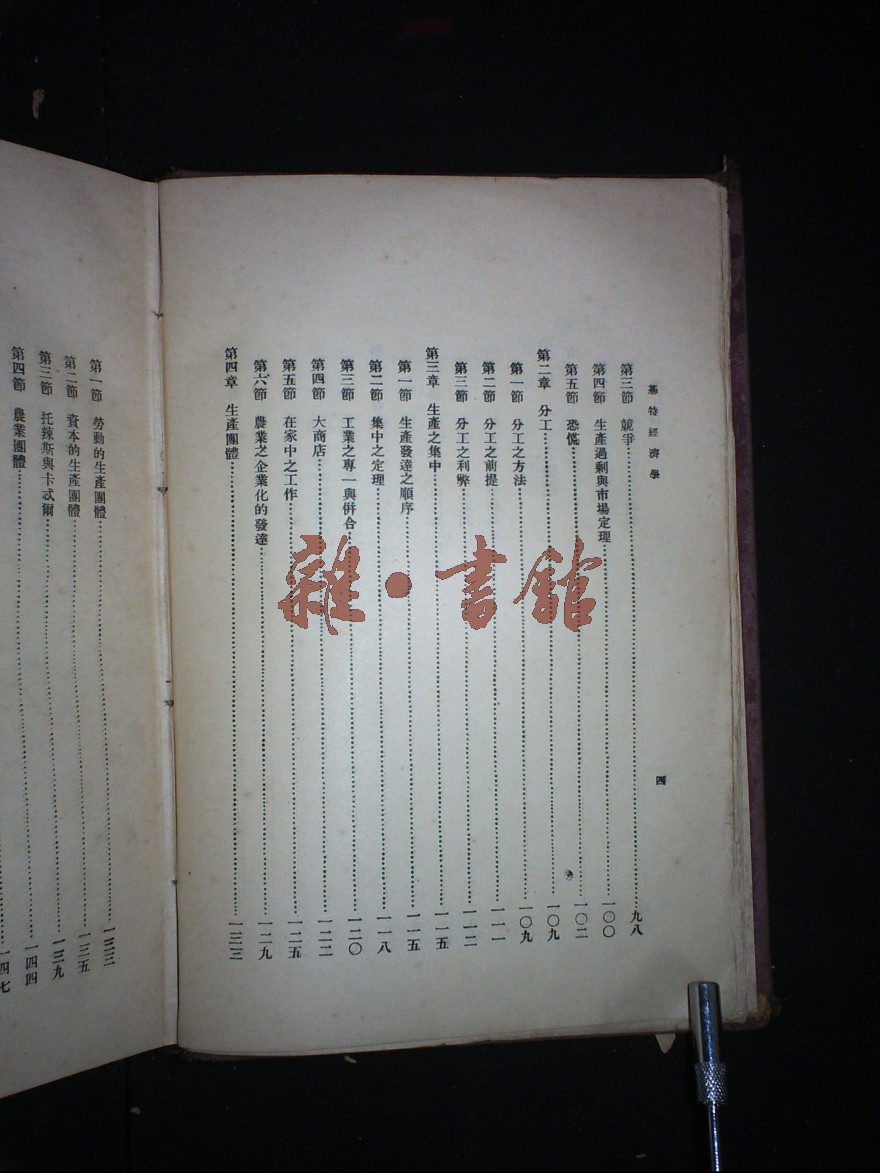 基特經濟學
四
第三節　競爭…………九八
第四節　生產過剩與市場定理…………一〇〇
第五節　恐慌…………一〇二
第二章　分工…………一〇九
第一節　分工之方法…………一〇九
第二節　分工之前提…………一一一
第三節　分工之利弊…………一一二
第三章　生產之集中…………一一五
第一節　生產發達之順序…………一一五
第二節　集中之定理…………一一八
第三節　工業之專一與併合…………一二〇
第四節　大商店…………一二二
第五節　在家中之工作…………一二五
第六節　農業之企業化的發達…………一二九
第四章　生產團體…………一三三
第一節　勞動的生產團體…………一三三
第二節　資本的生產團體…………一三五
第三節　托辣斯與卡忒爾…………一三九
第四節　農業團體…………一四四
一四七
雜·書館